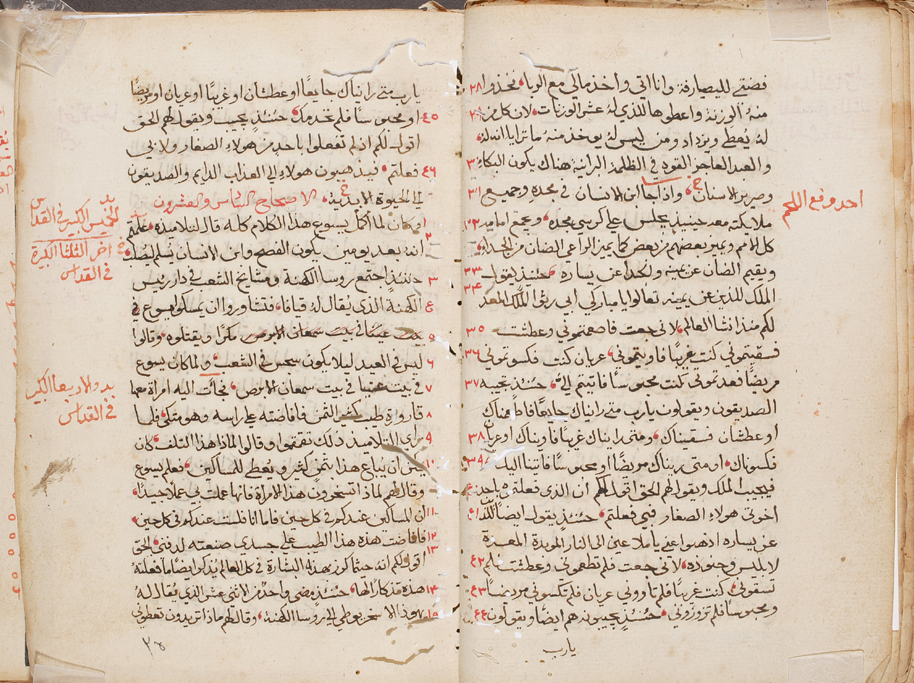 فضتي للصيارفة وانا اتي واخذ مالي مع الربا فخذوا ٢٨
منه الوزنة واعطوها للذي له عشر الوزنات لان كل من ٢٩
له يُعطى ويزداد ومن ليس له يوخذ منه ما تراياان له
والعبد العاجز القوه في الظلمة البرانية هناك يكون البكاء ٣٠
وصرير الاسنان واذا جا ابن الانسان في مجده وجميع ٣١
ملايكته معه حينيذ يجلس على كرسي مجده وتجمع امامه ٣٢
كل الامم ويميز بعضهم من بعض كما يميز الراعي الضان من الجدا
ويقيم الضان عن يمينه والجدا عن يساره حينيذ يقول ٣٣ ٣٤
الملك للذين عن يمينه تعالوا يا مباركي ابي رثوا الملك المعد
لكم منذ انشا العالم لاني جعت فاطعمتموني وعطشت ٣٥
فسقيتموني كنت غريبًا فاويتموني عريان كنت فكسوتموني ٣٦
مريضًا فعدتموني كنت محبوسًا فاتيتم اليّ حينيذ يجيبه ٣٧
الصديقون ويقولون يارب متى رايناك جايعًا فاطعمناك
او عطشان فسقيناك ومتى رايناك غريبًا فاويناك او عريان ٣٨
فكسوناك او متى رايناك مريضًا او محبوسًا فاتينا اليك ٣٩
فيجيب الملك ويقول لهم الحق اقول لكم ان الذي فعلتموه باحد ٤٠
اخوتي هولاء الصغار فبي فعلتم حينيذ يقول ايضًا للذين ٤١
عن يساره اذهبوا عني يا ملاعين الى النار الموبدة المعدة
لابليس وجنوده لاني جعت فلم تطعموني وعطشت فلم ٤٢
تسقوني كنت غريبًا فلم تاووني عريان فلم تكسوني مريضًا ٤٣
ومحبوسًا فلم تزوروني حينيذ يجيبون هم ايضًا ويقولون ٤٤
يارب
احد رفع اللحم
يارب متى رايناك جايعًا او عطشان او غريبًا او عريان او مريضًا
او محبوسًا فلم نخدمك حينيذ يجيب ويقول لهم الحق ٤٥
اقول لكم اذ لم تفعلوا باحد من هولاء الصغار ولا بي
فعلتم فيذهبون هولاء الى العذاب الدايم والصديقون ٤٦
الى الحيوة الابدية الاصحاح السادس والعشرون
وكان لما اكمل يسوع هذا الكلام كله قال لتلاميذه علمتم ١
انه بعد يومين يكون الفصح وابن الانسان يُسلم ليُصلب ٢
حينيذ اجتمع روسا الكهنة ومشايخ الشعب في دار رييس ٣
الكهنة الذي يقال له قيافا فتشاوروا ان يمسكوا يسوع ٤
مكرًا ويقتلوه وقالوا ٥
ليس في العيد ليلا يكون سجس في الشعب ولما كان يسوع ٦
في بيت عنيا في بيت سمعان الابرص فجات اليه امراة معها ٧
قارورة طيب كثير الثمن فافاضته على راسه وهو متكي فلما ٨
راى التلاميذ ذلك تقمقموا وقالوا لماذا هذا التلف كان ٩
ينبغي ان يباع هذا بثمن كثير ويُعطى للمساكين فعلم يسوع ١٠
وقال لهم لماذا تسجرون هذه الامراة فانها عملت بي عملًا جيدًا
لان المساكين عندكم في كل حين فاما انا فلست عندكم في كل حين ١١
فافاضت هذه هذا الطيب على جسدي صنعته لدفني الحق ١٢
اقول لكم انه حيثما كرز بهذه البشارة في كل العالم يذكر ايضًا ما فعلته ١٣
هذه تذكارًا لها حينيذ مضى واحد من الاثنى عشر الذي يقال له ١٤
يهوذا الاسخريوطي الى روسا الكهنة وقال لهم ماذا تريدون تعطوني ١٥
الخميس الكبير في القداس
في اخر الثلثا الكبيرة
في القداس
بدو الاربعا الكبير
في القداس